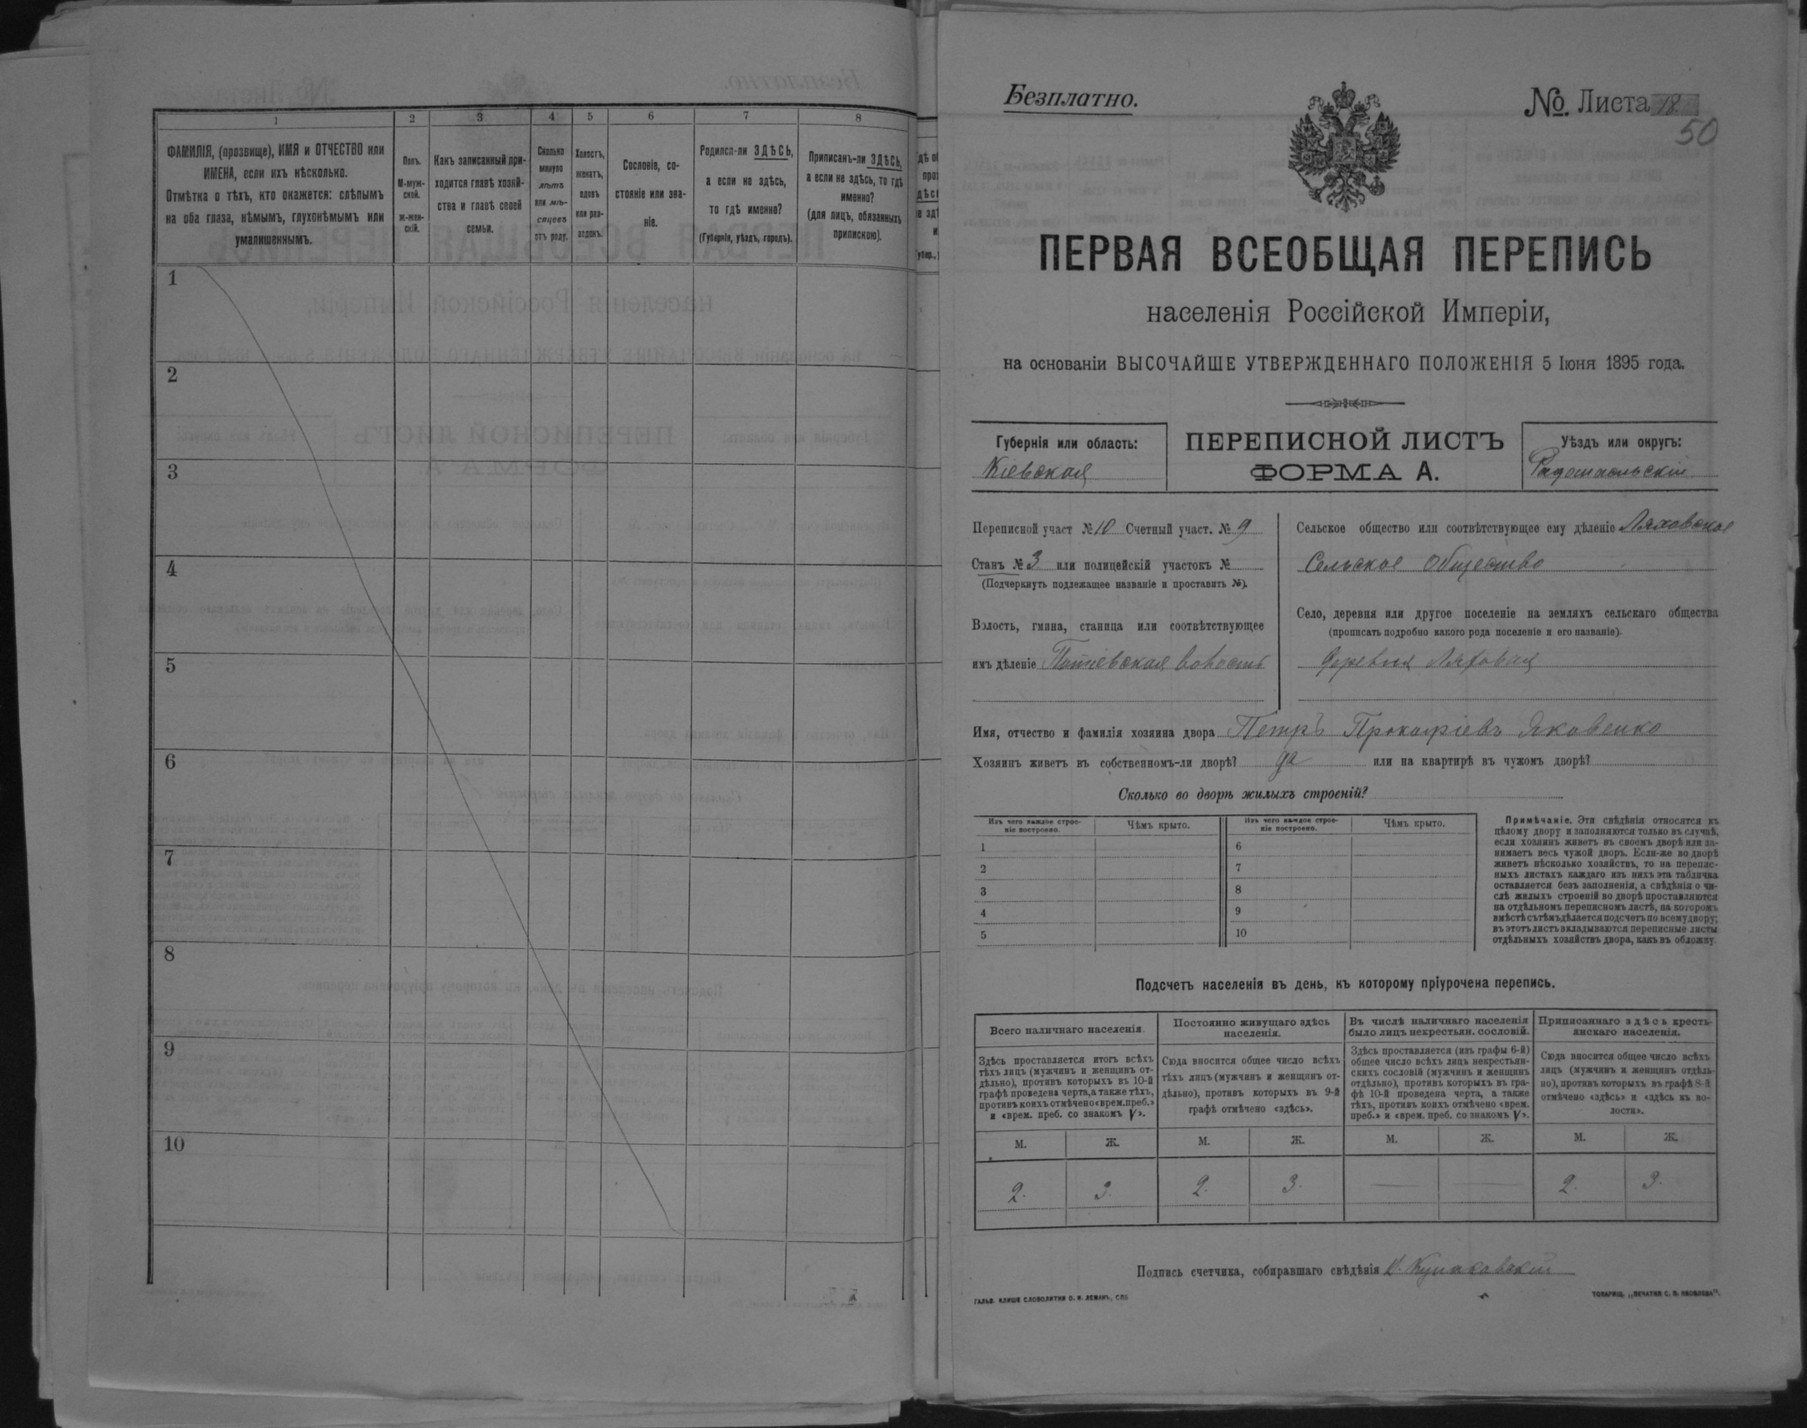 1 2 3 4 5 6 7 8
ФАМИЛІЯ, (прозвище), ИМЯ и ОТЧЕСТВО или
ИМЕНА, если ихъ нѣсколько.
Отмѣтка о тѣхъ, кто окажется: слѣпымъ
на оба глаза, нѣмымъ, глухонѣмымъ или
умалишеннымъ.
Полъ.
М-муж-
ской.
ж-жен-
скій.
Какъ записанный при-
ходится главѣ хозяй-
ства и главѣ своей
семьи.
Сколько
минуло
лѣтъ
или мѣ-
сяцевъ
отъ роду.
Холостъ,
женатъ,
вдовъ
или раз-
веденъ.
Сословіе, со-
стояніе или зва-
ніе.
Родился-ли ЗДѢСЬ,
а если не здѣсь,
то гдѣ именно?
(Губернія, уѣздъ, городъ).
Приписанъ-ли ЗДѢСЬ,
а если не здѣсь, то гдѣ
именно?
(для лицъ, обязанныхъ
припискою).
1
2
3
4
5
6
7
8
9
10
Безплатно.
№. Листа 18
50
ПЕРВАЯ ВСЕОБЩАЯ ПЕРЕПИСЬ
населенія Россійской Имперіи,
на основаніи ВЫСОЧАЙШЕ УТВЕРЖДЕННАГО ПОЛОЖЕНІЯ 5 Іюня 1895 года.
Губернія или область:
Кіевская
ПЕРЕПИСНОЙ ЛИСТЪ
ФОРМА А.
Уѣздъ или округъ:
Радомысльскій
Переписной участ № 10 Счетный участ. № 9
Станъ № 3 или полицейскій участокъ №
(Подчеркнуть подлежащее названіе и проставить №).
Волость, гмина, станица или соотвѣтствующее
имъ дѣленіе волость
Сельское общество или соотвѣтствующее ему дѣленіе Ляховское
Сельское Общество
Село, деревня или другое поселеніе на земляхъ сельскаго общества
(прописать подробно какого рода поселеніе и его названіе).
деревня Ляховая
Имя, отчество и фамилія хозяина двора Петръ Прокофіевъ Яковенко
Хозяинъ живетъ въ собственномъ-ли дворѣ? да или на квартирѣ въ чужомъ дворѣ?
Сколько во дворѣ жилыхъ строеній?
Изъ чего каждое строе-
ніе построено.
Чѣмъ крыто.
Изъ чего каждое строе-
ніе построено.
Чѣмъ крыто.
1 6
2 7
3 8
4 9
5 10
Примѣчаніе. Эти свѣдѣнія относятся къ
цѣлому двору и заполняются только въ случаѣ,
если хозяинъ живетъ въ своемъ дворѣ или за-
нимаетъ весь чужой дворъ. Если-же во дворѣ
живетъ нѣсколько хозяйствъ, то на перепис-
ныхъ листахъ каждаго изъ нихъ эта табличка
оставляется безъ заполненія, а свѣдѣнія о чи-
слѣ жилыхъ строеній во дворѣ проставляются
на отдѣльномъ переписномъ листѣ, на которомъ
вмѣстѣ съ тѣмъ дѣлается подсчетъ по всему двору;
въ этотъ листъ вкладываются переписные листы
отдѣльныхъ хозяйствъ двора, какъ въ обложку.
Подсчетъ населенія въ день, къ которому пріурочена перепись.
Всего наличнаго населенія.
Здѣсь проставляется итогъ всѣхъ
тѣхъ лицъ (мужчинъ и женщинъ от-
дѣльно), противъ которыхъ въ 10-й
графѣ проведена черта, а также тѣхъ,
противъ коихъ отмѣчено «врем. преб.»
и «врем. преб. со знакомъ V».
Постоянно живущаго здѣсь
населенія.
Сюда вносится общее число всѣхъ
тѣхъ лицъ (мужчинъ и женщинъ от-
дѣльно), противъ которыхъ въ 9-й
графѣ отмѣчено «здѣсь».
Въ числѣ наличнаго населенія
было лицъ некрестьян. сословій.
Здѣсь проставляется (изъ графы 6-й)
общее число всѣхъ лицъ некрестьян-
скихъ сословій (мужчинъ и женщинъ
отдѣльно), противъ которыхъ въ гра-
фѣ 10-й проведена черта, а также
тѣхъ, противъ коихъ отмѣчено «врем.
преб.» и «врем. преб. со знакомъ V».
Приписаннаго здѣсь кресть-
янскаго населенія.
Сюда вносится общее число всѣхъ
лицъ (мужчинъ и женщинъ отдѣль-
но), противъ которыхъ въ графѣ 8-й
отмѣчено «здѣсь» и «здѣсь въ во-
лости».
М. Ж. М. Ж. М. Ж. М. Ж.
2. 3 2. 3. — — 2. 3.
Подпись счетчика, собиравшаго свѣдѣнія
ГАЛЬВ. КЛИШЕ СЛОВОЛИТНИ О. И. ЛЕМАНЪ, СПБ
ТОВАРИЩ. „ПЕЧАТНЯ С. П. ЯКОВЛЕВА“.